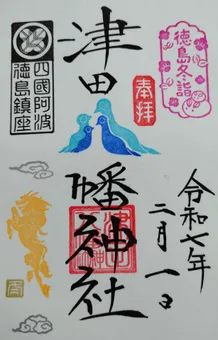 徳島冬詣
奉拝
令和七年
二月一日
津田
幡神社
四國阿波
徳島鎮座